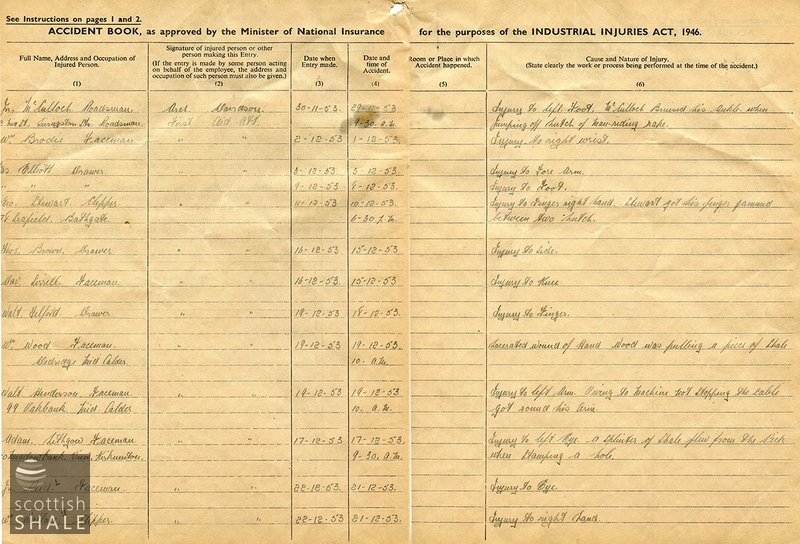 See Instructions on pages 1 and 2.
ACCIDENT BOOK, as approved by the Minister of National Insurance for the purposes of the INDUSTRIAL INJURIES ACT, 1946.
Full Name, Address and Occupation of Injured Person.
(1)
Signature of injured person or other person making this Entry.
(If the entry is made by some person acting on behalf of the employee, the address and occupation of such person must also be given.)
(2)
Date when Entry made.
(3)
Date and time of Accident.
(4)
Room or Place in which Accident happened.
(5)
Cause and Nature of Injury.
(State clearly the work or process being performed at the time of the accident.)
(6)
Jn. McCulloch Roadsman. Davidson. 30-11-53 29-11-53 Injury to Left Foot. McCulloch Bruised his Ankle when
Livingston Roadsman First Aid Att. 9-30. a.m. jumping off hutch of man-riding rake.
Wm Brodie Faceman " " 2-12-53 1-12-53 Injury to right wrist.
Jas. Elliott Drawer " " 3-12-53 3-12-53 Injury to Fore Arm.
" " " 9-12-53 8-12-53 Injury to Foot.
Geo. Stewart Clipper " " 11-12-53 10-12-53 Injury to Finger right hand. Stewart got his finger jammed
Leafield, Bathgate 6-30 between two hutch.
Thos. Brown, Drawer " " 16-12-53 15-12-53 Injury to Side.
Dav. Faceman " " 16-12-53 15-12-53 Injury to Knee
Walt. Telford Drawer " " 19-12-53 18-12-53 Injury to Finger.
Wm Wood Faceman " " 19-12-53 19-12-53 Lacerated wound of Hand Wood was pulling a piece of Shale
Mid Calder 10. a.m.
Walt Henderson Faceman " " 19-12-53 19-12-53 Injury to left Arm Owing to machine not stopping the cable
99 Oakbank Mid Calder 10. a.m. got round his Arm
Adam Lithgow Faceman " " 17-12-53 17-12-53 Injury to left Eye a Splinter of Shale flew from the Pick
View, 9-30. a.m. when stamping a hole.
Faceman " " 22-12-53 21-12-53 Injury to Eye.
Clipper " " 22-12-53 21-12-53 Injury to right hand.
scottish
SHALE